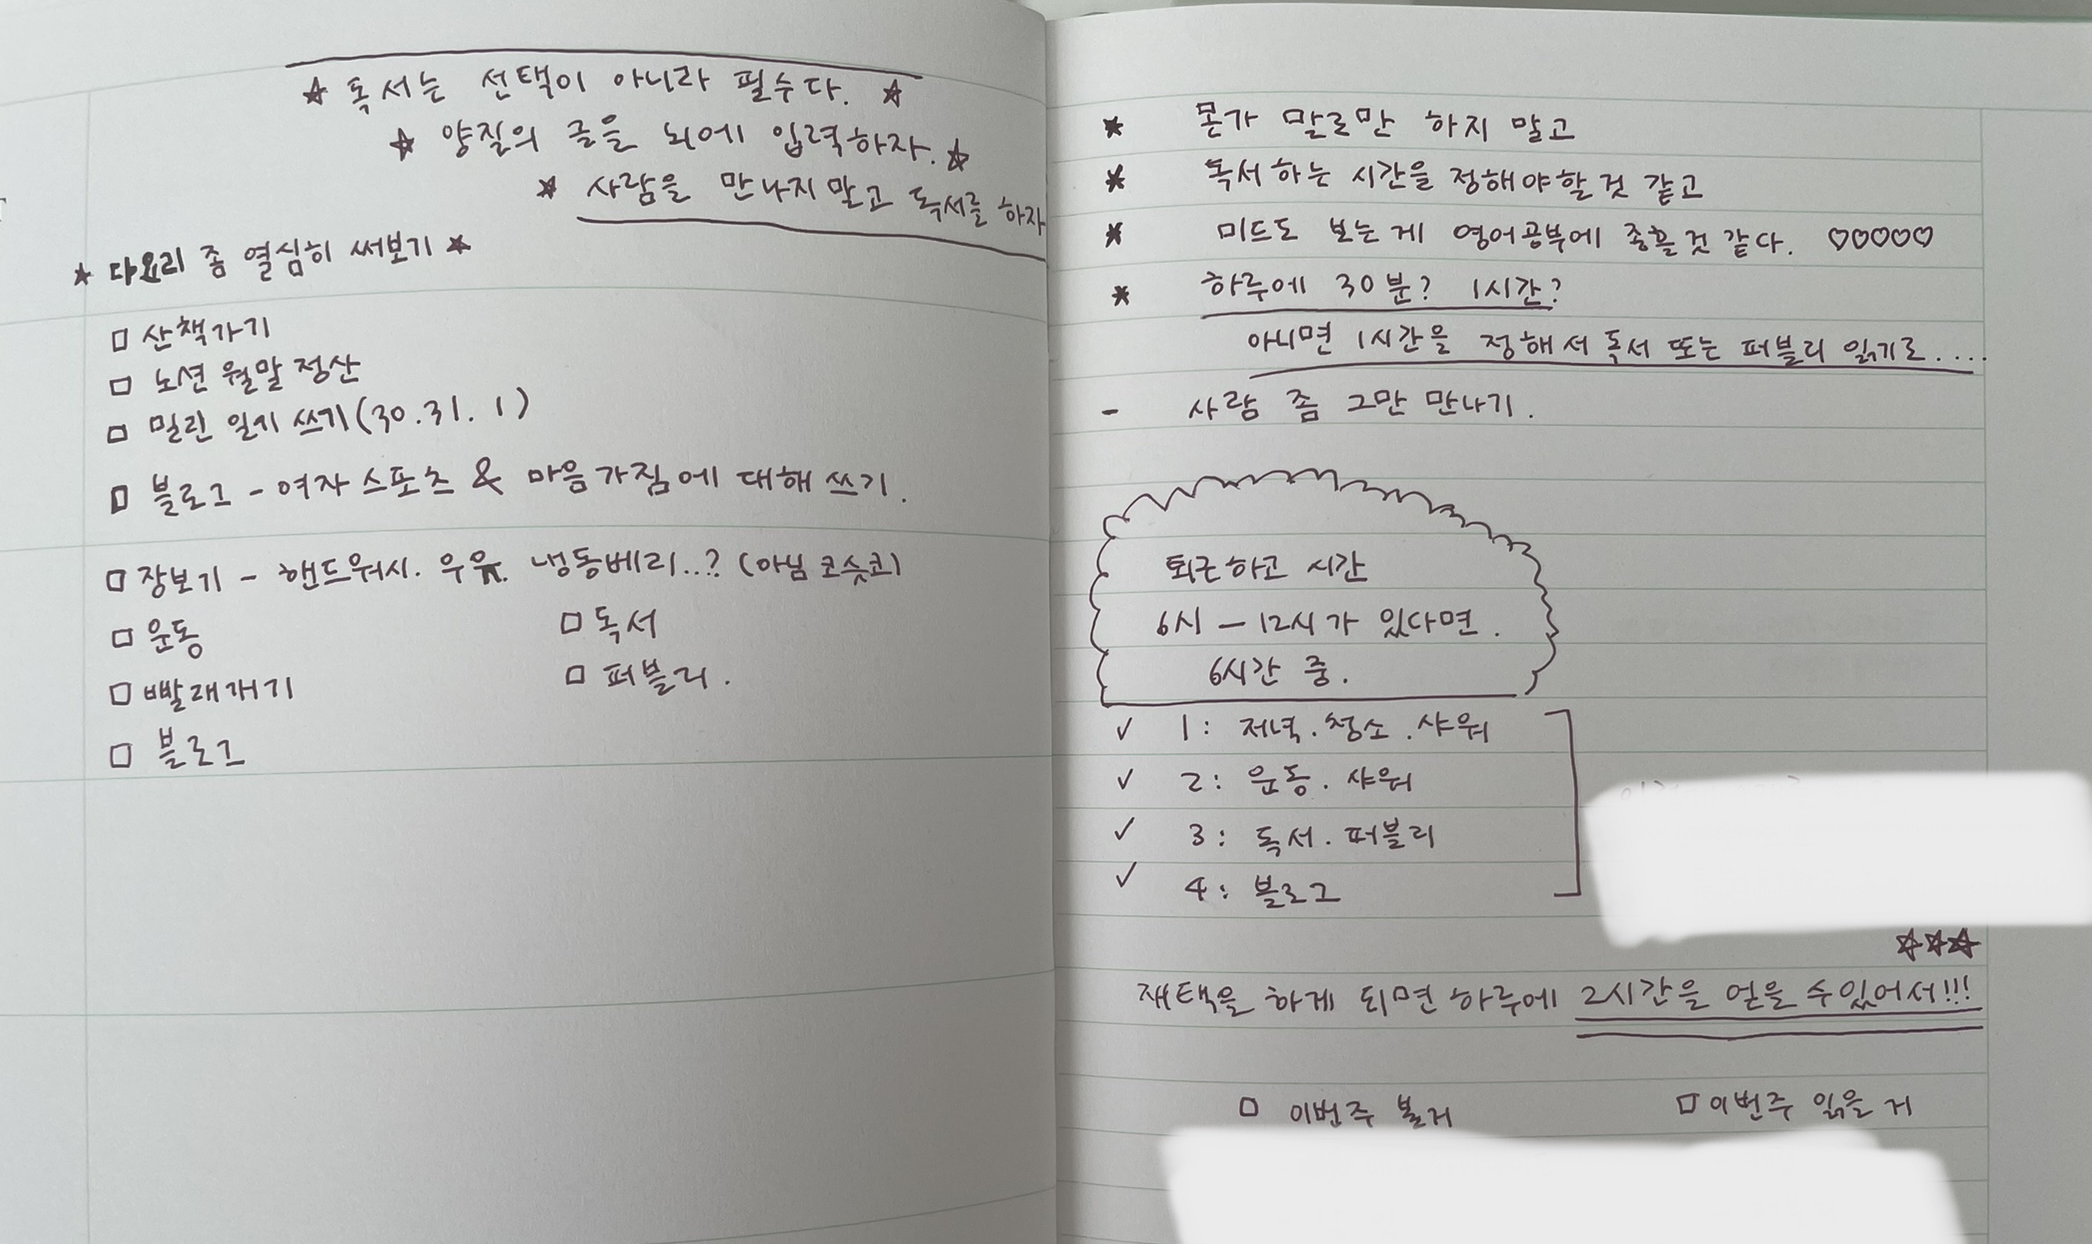 ☆ 독서는 선택이 아니라 필수다. ☆
☆ 양질의 글을 뇌에 입력하자. ☆
★ 사람을 만나지 말고 독서를 하자
★ 다요리 좀 열심히 써보기 ★
□ 산책가기
□ 노션 월말 정산
□ 밀린 일기 쓰기 (30. 31. 1)
□ 블로그 - 여자 스포츠 & 마음가짐에 대해 쓰기.
□ 장보기 - 핸드워시. 우유. 냉동베리..? (아님 코슷코)
□ 운동 □ 독서
□ 빨래개기 □ 퍼블리.
□ 블로그
* 몬가 말로만 하지 말고
* 독서하는 시간을 정해야할 것 같고
* 미드도 보는 게 영어공부에 좋을 것 같다. ♡♡♡♡♡
* 하루에 30분? 1시간?
아니면 1시간을 정해서 독서 또는 퍼블리 읽기로....
- 사람 좀 그만 만나기.
퇴근하고 시간
6시 - 12시가 있다면.
6시간 중.
✓ 1: 저녁. 청소. 샤워
✓ 2: 운동. 샤워
✓ 3: 독서. 퍼블리
✓ 4: 블로그
☆☆☆
재택을 하게 되면 하루에 2시간을 얻을 수 있어서!!!
□ 이번주 볼거 □ 이번주 읽을 거